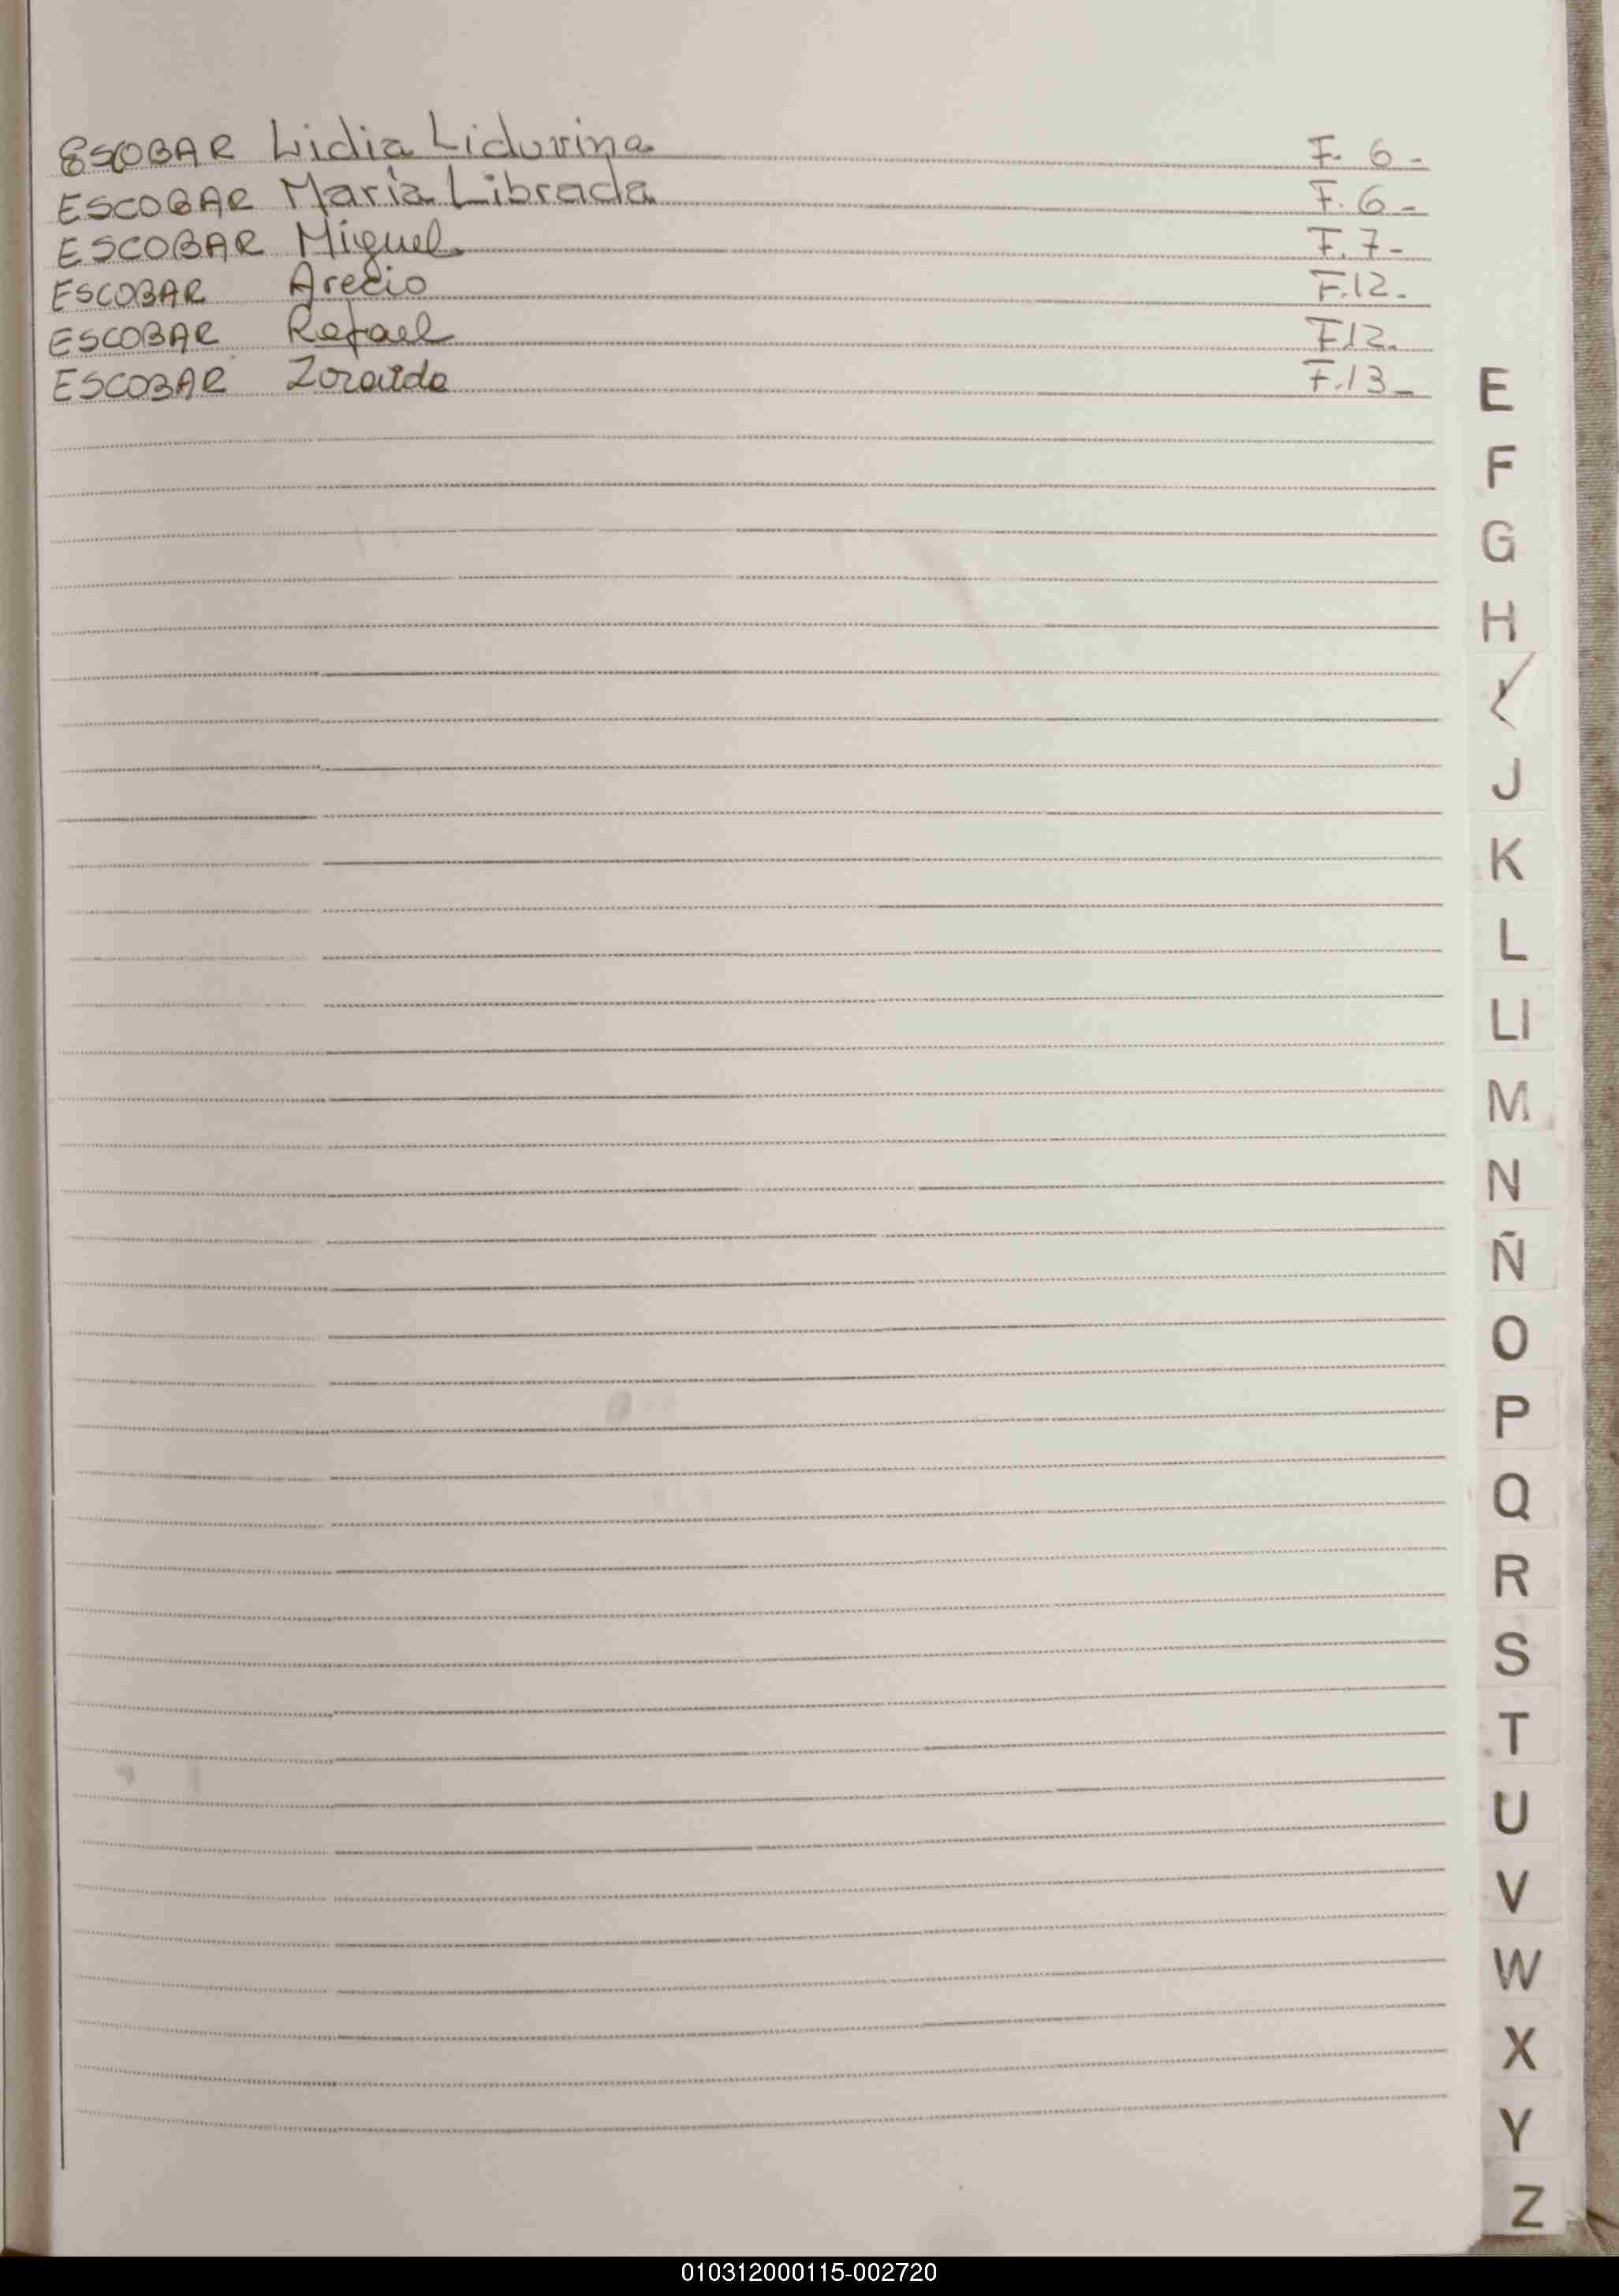 ESCOBAR Lidia Liduvina F. 6-
ESCOBAR María Librada F. 6-
ESCOBAR Miguel F. 7-
ESCOBAR Arecio F. 12-
ESCOBAR Rafael F12.
ESCOBAR Zoraida F. 13-
E
F
G
H
J
K
L
Ll
M
N
Ñ
O
P
Q
R
S
T
U
V
W
X
Y
Z
010312000115-002720